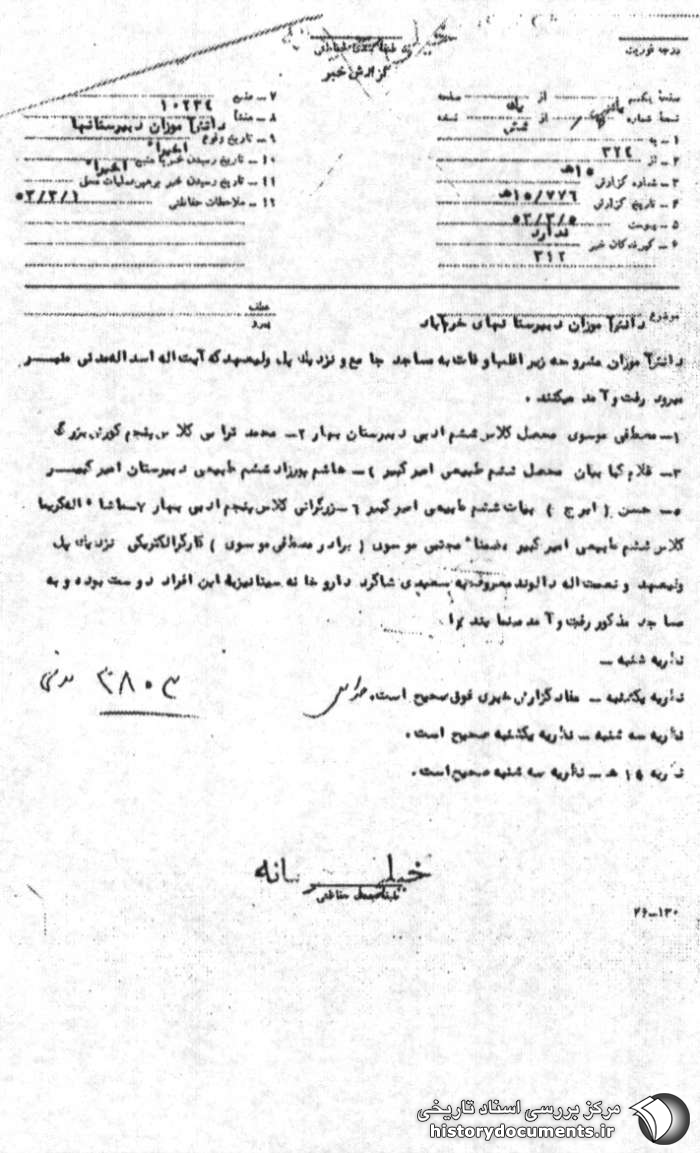 درجه فوریت
طبقه بندی حفاظتی
گزارش خبر
صفحه یکم از یک صفحه
نسخه شماره از شش نسخه
۱ – به ۳۲۲
۲ – از ۱۵ه‍
۳ – شماره گزارش ۱۵/۷۷۶ه‍
۴ – تاریخ گزارش ۵۲/۳/۵
۵ – پیوست ندارد
۶ – گیرندگان خبر ۳۱۲
۷ – منبع ۱۰۲۳۴
۸ – منشأ دانش آموزان دبیرستانها
۹ – تاریخ وقوع اخیرا"
۱۰ – تاریخ رسیدن خبر به منبع اخیرا"
۱۱ – تاریخ رسیدن خبر برهبر عملیات محل ۵۲/۳/۱
۱۲ – ملاحظات حفاظتی
موضوع دانش آموزان دبیرستانهای خرم آباد
عطف
پیرو
دانش آموزان مشروحه زیر اغلب اوقات به مساجد جامع و نزدیک پل ولیعهد که آیت اله اسداله مدنی منبر
میرود رفت و آمد میکنند .
۱– مصطفی موسوی محصل کلاس ششم ادبی دبیرستان بهار ۲– محمد کلاس پنجم کورش بزرگ
۳– غلام کیا بیان محصل ششم طبیعی امیرکبیر ۴– هاشم پورزاد ششم طبیعی دبیرستان امیرکبیر
۵– حسن ( ایرج ) بیات ششم طبیعی امیرکبیر ۶– زرگرانی کلاس پنجم ادبی بهار ۷– ماشاء اله کریما
کلاس ششم طبیعی امیرکبیر ضمنا" مجتبی موسوی ( برادر مصطفی موسوی ) کارگر الکتریکی نزدیک پل
ولیعهد و نعمت اله دالوند معروف به سعیدی شاگرد داروخانه سینا نیز با این افراد دوست بوده و به
مساجد مذکور رفت و آمد مینمایند
نظریه شنبه –
نظریه یکشنبه – مفاد گزارش خبری فوق صحیح است.
نظریه سه شنبه – نظریه یکشنبه صحیح است .
نظریه ۱۵ ه‍ – نظریه سه شنبه صحیح است .
مدنی
خیلی محرمانه
طبقه بندی حفاظتی
۲۶–۱۳۰
مرکز بررسی اسناد تاریخی
historydocuments.ir